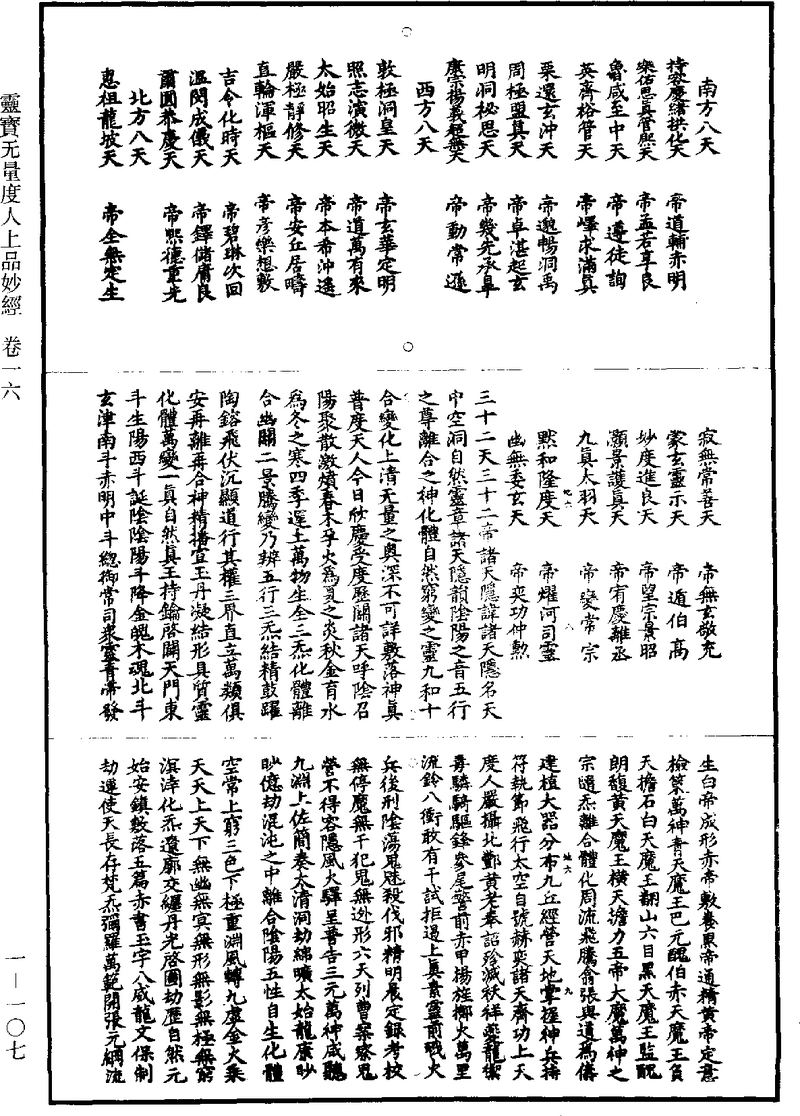 南方八天
持容慶緒拱化天　帝道輔赤明
樂佑思真管熙天　帝孟若享良
魯咸至中天　帝遵徒詢
英齊裕管天　帝嶧求滿真
粟還玄沖天　帝邈暢洞萬
周極盟真天　帝卓湛起玄
明洞秘思天　帝幾先承阜
慶霄揚義起無天　帝動常遜
西方八天
敦極洞皇天　帝玄華定明
照志演微天　帝道萬有來
太始昭生天　帝本希沖遙
嚴極靜修天　帝安丘居疇
直輪渾樞天　帝彥樂想敷
吉令化時天　帝碧琳次回
溫閔成儀天　帝鐸儲廣良
爾圓恭慶天　帝熙德重光
北方八天
惠祖龍坡天　帝全無定生
寂無常善天　帝無玄敬充
蒙玄靈示天　帝遁伯高
妙度進良天　帝望宗景昭
灝景護真天　帝宥慶離丞
九真太羽天　帝變常宗
默和隆度天　帝燿河司靈
幽無委玄天　帝奕功仲勲
三十二天三十二帝諸天隱諱諸天隱名天
中空洞自然靈章諸天隱韻陰陽之音五行
之尊離合之神化體自然窮變之靈九和十
合變化上清无量之奧深不可詳敷落神真
普度天人今日欣慶受度歷關諸天呼陰召
陽聚散激熾春木孕火爲夏之炎秋金育水
爲冬之寒四季遲土萬物生全三炁化體離
合幽關二景騰變乃辨五行三炁結精鼓躍
陶鎔飛伏沉顯道行其權三界直立萬類俱
安再離再合神精播宣王丹凝結形具質靈
化體萬變一真自然真王持鑰啓關天門東
斗生陽西斗誕陰陰陽斗降金魄木魂北斗
玄津南斗赤明中斗總御常司衆靈青帝發
生白帝成形赤帝敷養黑帝通精黄帝定意
檢策萬神青天魔王巴元醜伯赤天魔王負
天擔石白天魔王翻山六目黑天魔王監醜
朗馥黄天魔王横天擔力五帝大魔萬神之
宗隨炁離合體化周流飛騰翕張與道爲儔
建植大器分布九丘經營天地掌握神兵持
符執節飛行太空自號赫奕諸天齊功上天
度人嚴攝北酆黄老奉詔殄滅袄祥乘龍揮
毒驎騎驅鋒參尾警前赤甲揚旌擲火萬里
流鈴八衝敢有干試拒遏上真素靈前戮火
兵後刑陰蕩鬼魅殺伐邪精明晨定録考校
無停魔無干犯鬼無逃形六天列曹案察鬼
營不得容隱風火驛呈普告三元萬神咸聽
九淵上佐簡奏太清洞劫綿曠太始龍康眇
眇億劫混沌之中離合陰陽五性自生化體
空常上窮三色下極重淵風轉九虚金火乘
天天上天下無幽無冥無形無影無極無窮
溟涬化炁遼廓交纏丹光啓圖劫歷自然元
始安鎮敷落五篇赤書玉字八威龍文保制
劫運使天長存梵炁彌羅萬範開張元綱流
靈寶无量度人上品妙經　卷一六
一—一〇七